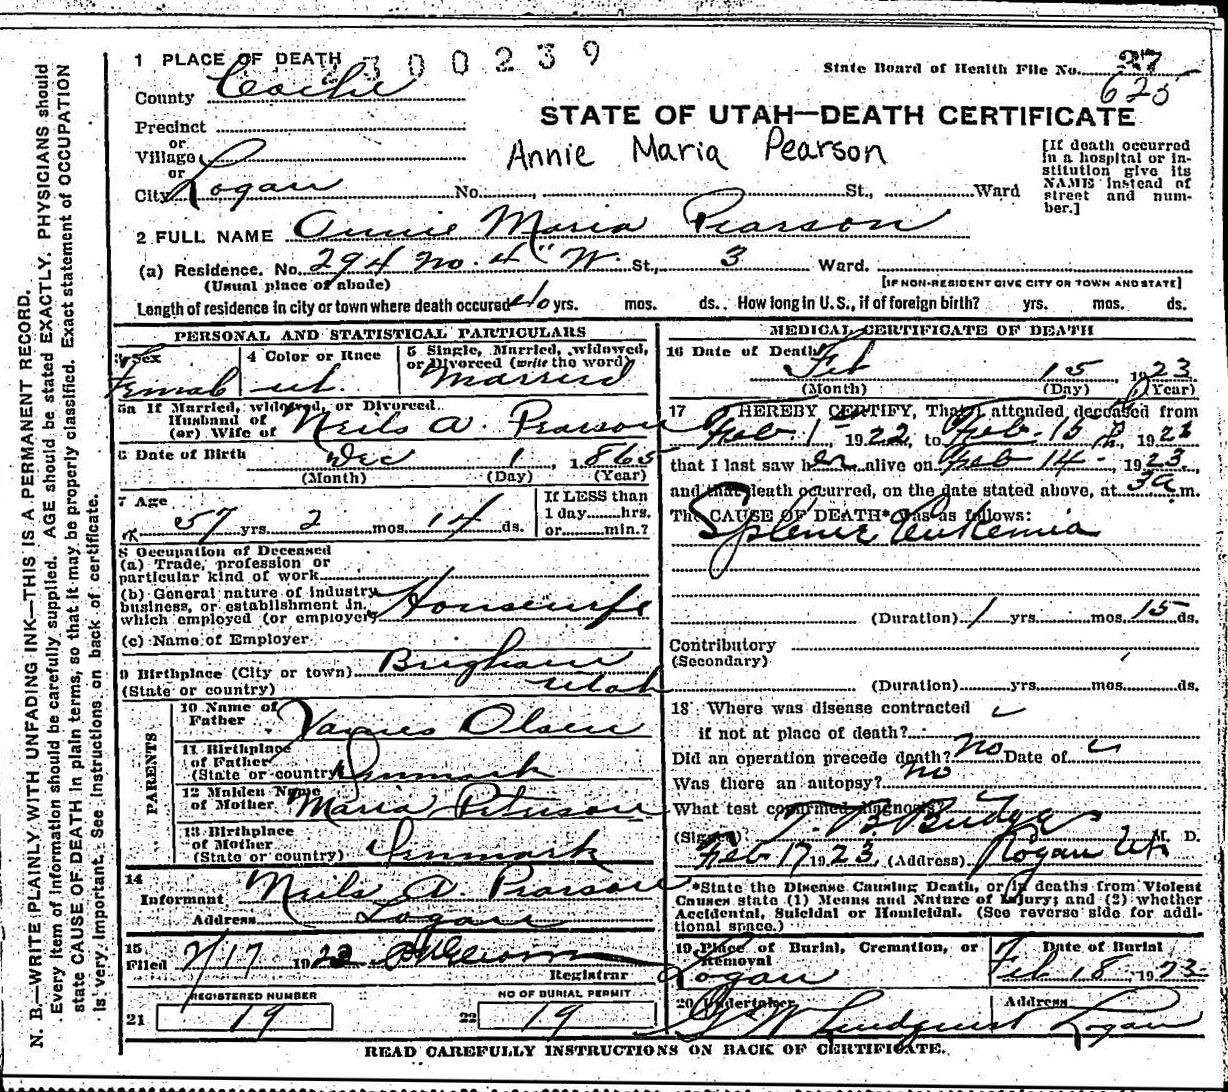 N. B.—WRITE PLAINLY WITH UNFADING INK—THIS IS A PERMANENT RECORD.
Every item of information should be carefully supplied. AGE should be stated EXACTLY. PHYSICIANS should
state CAUSE OF DEATH in plain terms, so that it may be properly classified. Exact statement of OCCUPATION
is very important. See instructions on back of certificate.
1 PLACE OF DEATH
2300239
State Board of Health File No. 27
625
County Cache
STATE OF UTAH—DEATH CERTIFICATE
Precinct
or
Village
or
City Logan No. St., Ward
Annie Maria Pearson
[If death occurred
in a hospital or in-
stitution give its
NAME instead of
street and num-
ber.]
2 FULL NAME Annie Maria Pearson
(a) Residence. No. 294 No. 4" W. St., 3 Ward.
(Usual place of abode) [IF NON-RESIDENT GIVE CITY OR TOWN AND STATE]
Length of residence in city or town where death occured 40 yrs. mos. ds. How long in U.S., if of foreign birth? yrs. mos. ds.
PERSONAL AND STATISTICAL PARTICULARS
3 Sex
Female
4 Color or Race
wh.
5 Single, Married, widowed,
or Divorced (write the word)
Married
5a If Married, widowed, or Divorced
Husband of
(or) Wife of Neils A. Pearson
6 Date of Birth Dec 1, 1865
(Month) (Day) (Year)
7 Age
57 yrs. 2 mos. 14 ds.
If LESS than
1 day......hrs.
or......min.?
8 Occupation of Deceased
(a) Trade, profession or
particular kind of work
(b) General nature of industry,
business, or establishment in
which employed (or employer) Housewife
(c) Name of Employer
9 Birthplace (City or town) Brigham
(State or country) Utah
PARENTS
10 Name of
Father James Olsen
11 Birthplace
of Father
(State or country) Denmark
12 Maiden Name
of Mother Maria Peterson
13 Birthplace
of Mother
(State or country) Denmark
14
Informant Neils A. Pearson
Address Logan
15
Filed 2/17 1923
Registrar
REGISTERED NUMBER
21 19
NO OF BURIAL PERMIT
22 19
MEDICAL CERTIFICATE OF DEATH
16 Date of Death
Feb 15 1923
(Month) (Day) (Year)
17 I HEREBY CERTIFY, That I attended deceased from
Feb. 1st, 1922, to Feb. 15, 192
that I last saw her alive on Feb 14, 1923,
and that death occurred, on the date stated above, at 3 a.m.
The CAUSE OF DEATH* was as follows:
Splenic Leukemia
(Duration) 1 yrs. mos. 15 ds.
Contributory
(Secondary)
(Duration) yrs. mos. ds.
18 Where was disease contracted
if not at place of death?
Did an operation precede death? no Date of
Was there an autopsy? no
What test confirmed diagnosis?
(Signed) T. B. Budge M. D.
Feb 17 1923, (Address) Logan Ut
*State the Disease Causing Death, or in deaths from Violent
Causes state (1) Means and Nature of Injury; and (2) whether
Accidental, Suicidal or Homicidal. (See reverse side for addi-
tional space.)
19 Place of Burial, Cremation, or
Removal
Logan
Date of Burial
Feb 18, 1923
20 Undertaker
G W Lindquist
Address
Logan
READ CAREFULLY INSTRUCTIONS ON BACK OF CERTIFICATE.